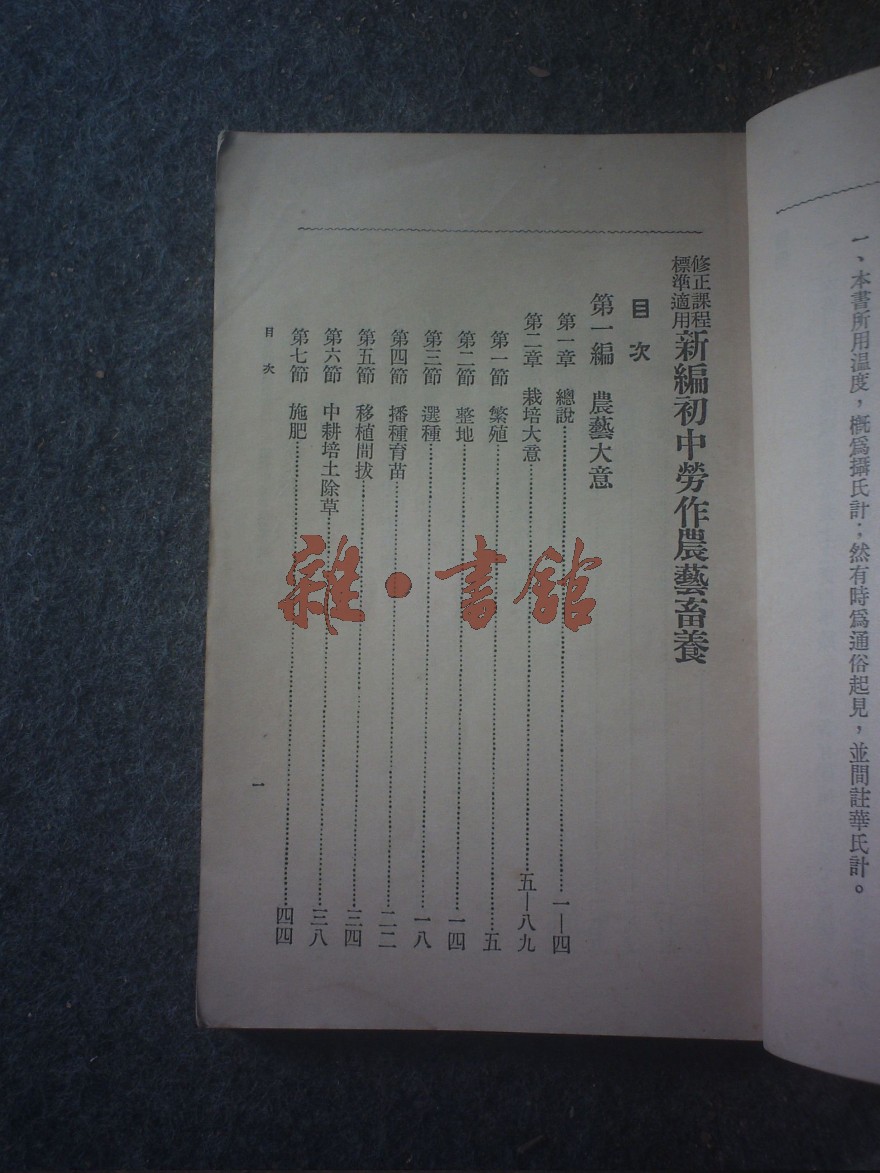 一、本書所用温度，概爲攝氏計；然有時爲通俗起見，並間註華氏計。
修正課程標準適用 新編初中勞作農藝畜養
目次
第一編 農藝大意
第一章 總說……一—四
第二章 栽培大意……五—八九
第一節 繁殖……五
第二節 整地……一四
第三節 選種……一八
第四節 播種育苗……二二
第五節 移植間拔……三四
第六節 中耕培土除草……三八
第七節 施肥……四四
目次
一
雜·書館